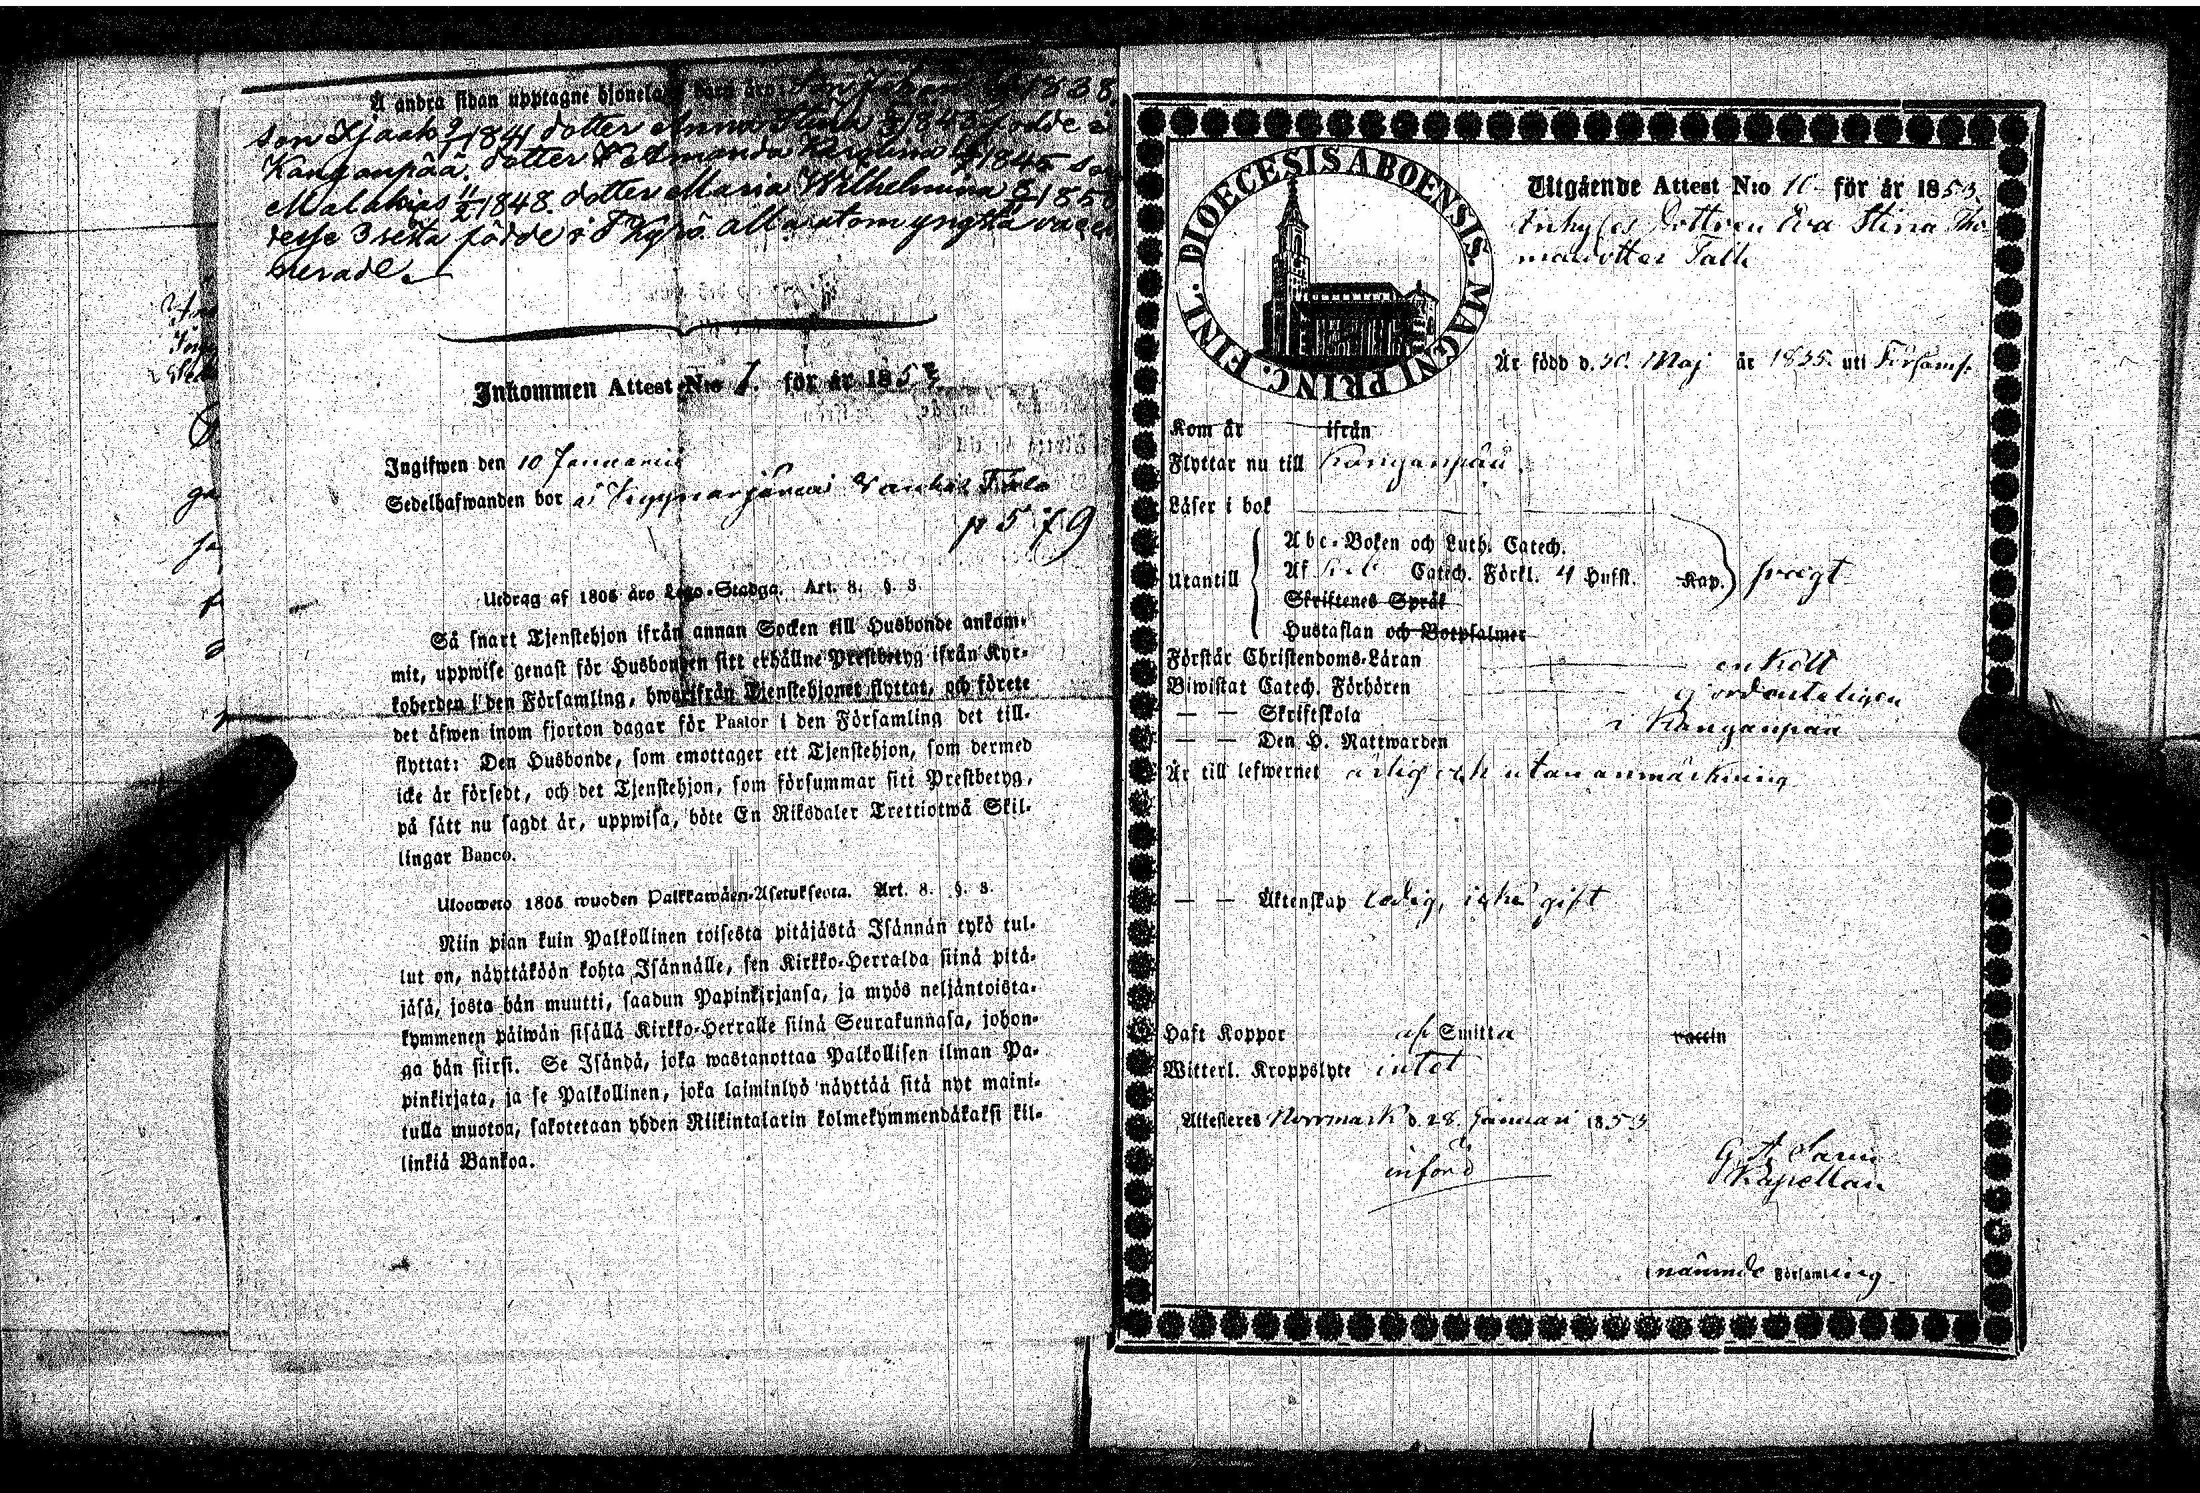 Å andra sidan upptagne hjonelags barn äro: Son Johan 1838.
son Isaak 9/7 1841 dotter Anna Stina 1843 födde i
Kanganpää. dotter Amanda Karolina 1845 son
Malakias 11/2 1848. dotter Maria Wilhelmina 1850
desse 3 sista födde i Kyrö. alla utom yngsta vacci
nerade.
Inkommen Attest N:o 1. för år 1853.
Ingifwen den 10 Januarii
Sedelhafwanden bor i
p 579
Utdrag af 1805 års Lego-Stadga. Art. 8. §. 3.
Så snart Tjenstehjon ifrån annan Socken till Husbonde ankom-
mit, uppwise genast för Husbonden sitt erhållne Prestbetyg ifrån Kyr-
koherden i den Församling, hwarifrån Tjenstehjonet flyttat, och förete
det äfwen inom fjorton dagar för Pastor i den Församling det till-
flyttat: Den Husbonde, som emottager ett Tjenstehjon, som dermed
icke är försedt, och det Tjenstehjon, som försummar sitt Prestbetyg,
på sätt nu sagdt är, uppwisa, böte En Riksdaler Trettiotwå Skil-
lingar Banco.
Ulosweto 1805 wuoden Palkkawäen-Asetuksesta. Art. 8. §. 3.
Niin pian kuin Palkollinen toisesta pitäjästä Isännän tykö tul-
lut on, näyttäköön kohta Isännälle, sen Kirkko-Herralda siinä pitä-
jäsä, josta hän muutti, saadun Papinkirjansa, ja myös neljäntoista-
kymmenen päiwän sisällä Kirkko-Herralle siinä Seurakunnasa, johon-
ga hän siirsi. Se Isändä, joka wastanottaa Palkollisen ilman Pa-
pinkirjata, ja se Palkollinen, joka laiminlyö näyttää sitä nyt maini-
tulla muotoa, sakotetaan yhden Riikintalarin kolmekymmendäkaksi kil-
linkiä Bankoa.
DIOECESIS ABOENSIS. MAGNI PRINC. FINL.
Utgående Attest N:o 10 för år 1853.
Inhyses Dottren Eva Stina Tho
masdotter Falk
Är född d. 30. Maj år 1835. uti Församl.
Kom år ifrån
Flyttar nu till Kanganpää.
Läser i bok
Utantill
Abc-Boken och Luth. Catech.
Af Catech. Förkl. 4 Hufst. Kap.
swagt
Skriftenes Språk
Hustaflan och Botpsalmer
Förstår Christendoms-Läran enkelt
Biwistat Catech. Förhören ej ordenteligen
— — Skriftskola i Kanganpää
— — Den H. Nattwarden
Är till lefwernet ärlig och utan anmärkning
— — Äktenskap ledig, icke gift
Haft Koppor af Smitta vaccin
Witterl. Kroppslyte intet
Attesteres Norrmark d. 28. Januari 1853
införd
G A
Kapellan
nämnde Församling.